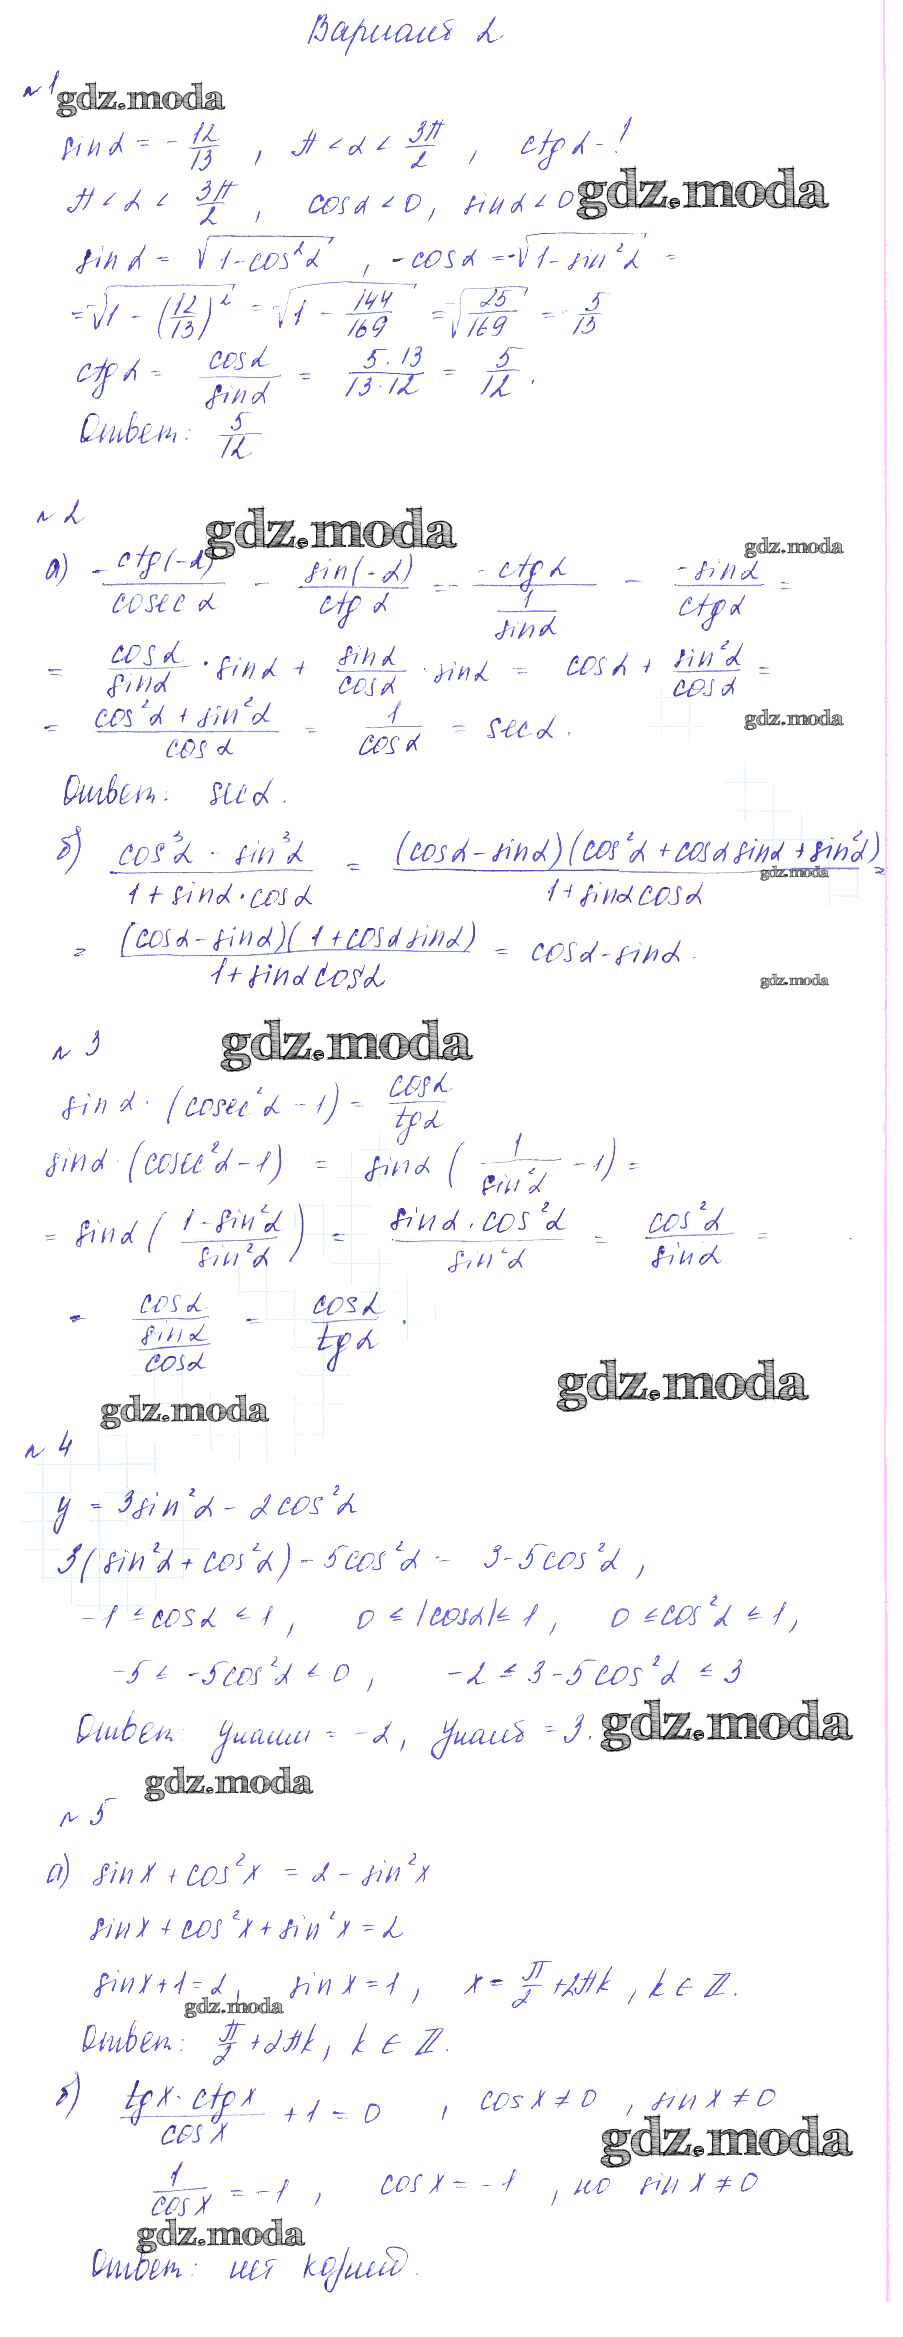 Вариант 2
№ 1 gdz.moda
sinα = -12/13 , π < α < 3π/2 , ctgα - !
π < α < 3π/2 , cosα < 0, sinα < 0 gdz.moda
sinα = √(1-cos²α) , -cosα = -√(1-sin²α) =
= -√(1 - (12/13)²) = -√(1 - 144/169) = -√(25/169) = -5/13
ctgα = cosα/sinα = 5·13/13·12 = 5/12.
Ответ: 5/12
№ 2 gdz.moda
gdz.moda
а) -ctg(-α)/cosecα - sin(-α)/ctgα = -ctgα/(1/sinα) - -sinα/ctgα =
= cosα/sinα · sinα + sinα/cosα · sinα = cosα + sin²α/cosα =
= (cos²α + sin²α)/cosα = 1/cosα = secα.
gdz.moda
Ответ: secα.
б) (cos³α - sin³α)/(1 + sinα·cosα) = (cosα - sinα)(cos²α + cosα sinα + sin²α)/(1 + sinα cosα) =
gdz.moda
= (cosα - sinα)(1 + cosα sinα)/(1 + sinα cosα) = cosα - sinα.
gdz.moda
№ 3 gdz.moda
sinα · (cosec²α - 1) = cosα/tgα
sinα · (cosec²α - 1) = sinα (1/sin²α - 1) =
= sinα ((1 - sin²α)/sin²α) = sinα · cos²α/sin²α = cos²α/sinα =
= cosα/(sinα/cosα) = cosα/tgα.
gdz.moda
gdz.moda
№ 4
y = 3sin²α - 2cos²α
3(sin²α + cos²α) - 5cos²α = 3 - 5cos²α ,
-1 ≤ cosα ≤ 1 , 0 ≤ |cosα| ≤ 1 , 0 ≤ cos²α ≤ 1,
-5 ≤ -5cos²α ≤ 0 , -2 ≤ 3 - 5cos²α ≤ 3
Ответ: yнаим = -2, yнаиб = 3. gdz.moda
gdz.moda
№ 5
а) sinx + cos²x = 2 - sin²x
sinx + cos²x + sin²x = 2
sinx + 1 = 2, sinx = 1 , x = π/2 + 2πk , k ∈ Z.
gdz.moda
Ответ: π/2 + 2πk, k ∈ Z.
б) tgx · ctgx/cosx + 1 = 0 , cosx ≠ 0 , sinx ≠ 0
gdz.moda
1/cosx = -1 , cosx = -1 , но sinx ≠ 0
gdz.moda
Ответ: нет корней.